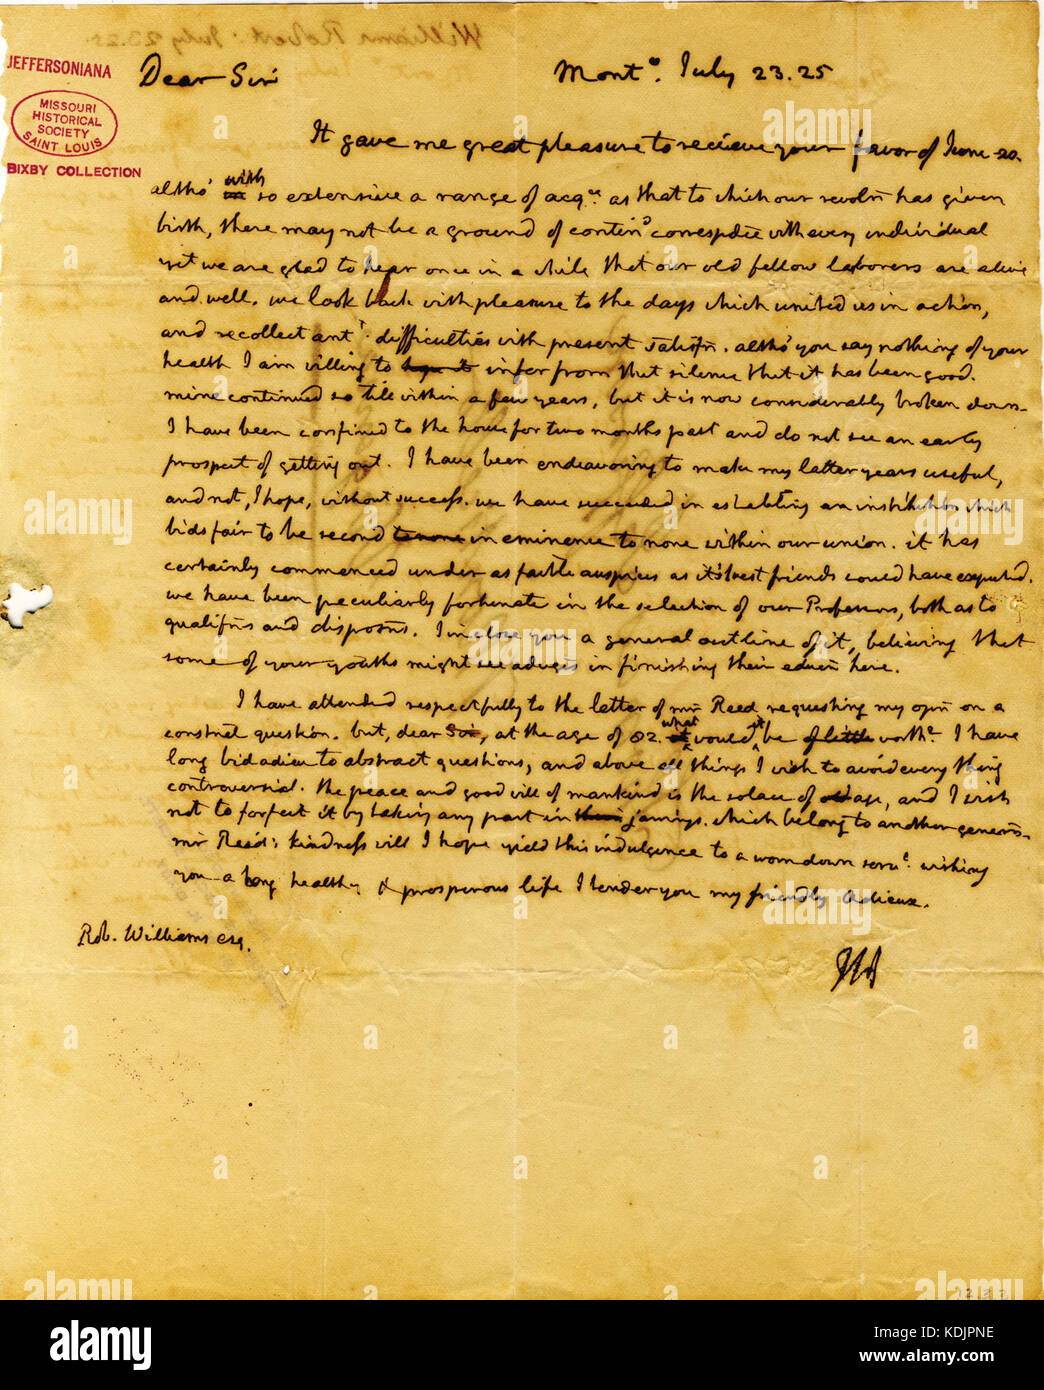 Williams Robert: July 23. 25.
JEFFERSONIANA
MISSOURI
HISTORICAL
SOCIETY
SAINT LOUIS
BIXBY COLLECTION
Dear Sir Montº. July 23. 25
It gave me great pleasure to recieve your favor of June 20.
altho' with so extensive a range of acqce as that to which our revoln has given
birth, there may not be a ground of contind correspdce with every individual
yet we are glad to hear once in a while that our old fellow laborers are alive
and well. we look back with pleasure to the days which united us in action,
and recollect antt difficulties with present satisfn. altho' you say nothing of your
health I am willing to infer from that silence that it has been good.
mine continued so till within a few years, but it is now considerably broken down.
I have been confined to the house for two months past and do not see an early
prospect of getting out. I have been endeavoring to make my latter years useful,
and not, I hope, without success. we have succeeded in establing an institution which
bids fair to be second to none in eminence to none within our union. it has
certainly commenced under as fair auspices as it's best friends could have expected.
we have been peculiarly fortunate in the selection of our Professors, both as to
qualifns and disposns. I inclose you a general outline of it, believing that
some of your youths might see advges in finishing their educn here.
I have attended respectfully to the letter of mr Reed requesting my opn on a
constnal question. but, dear Sir, at the age of 82. what would it be of little worth. I have
long bid adieu to abstract questions, and above all things I wish to avoid every thing
controversial. the peace and good will of mankind is the solace of old age, and I wish
not to forfeit it by taking any part in jarrings. which belong to another genern.
mr Reed's kindness will I hope yield this indulgence to a worn down servt. wishing
you a long healthy & prosperous life I tender you my friendly Adieux.
Rob. Williams esq.
ThJ
alamy
Image ID: KDJPNE
www.alamy.com